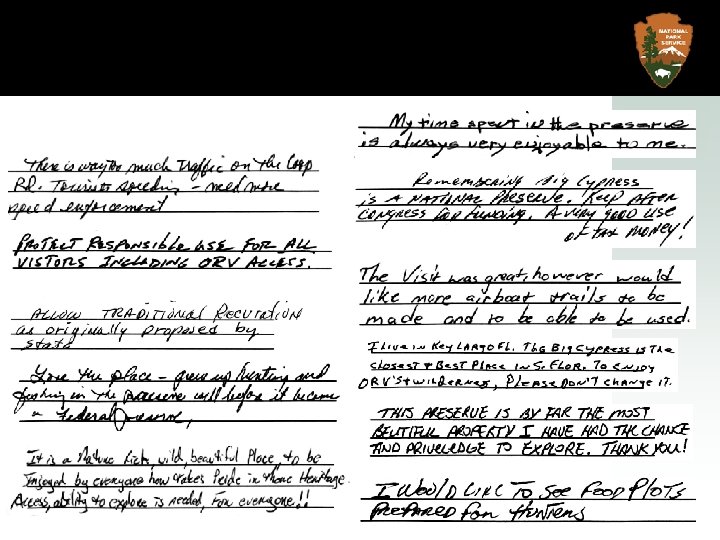 NATIONAL
PARK
SERVICE
There is way too much Traffic on the Loop
Rd. Tourists speeding - need more
speed enforcement
PROTECT RESPONSIBLE USE FOR ALL
VISTORS INCLUDING ORV ACCESS.
ALLOW TRADITIONAL Recreation
as originally proposed by
state
Love the place - grew up hunting and
fishing in the preserve well before it became
a Federal
It is a Nature Rich, wild, beautiful Place, to be
Enjoyed by everyone how takes Pride in there Heritage.
Access, ability to explore is needed, For everyone!!
My time spent in the preserve
is always very enjoyable to me.
Remembering Big Cypress
is A NATIONAL Preserve. Keep AFTER
CONGRESS FOR FUNDING. A very good use
of tax money!
The Visit was great, however would
like more airboat trails to be
made and to be able to be used.
I live in Key LARGO FL. THE BIG CYPRESS IS THE
closest & Best Place in S. Flor. To enjoy
ORV'S + wilderness, PLEASE DON'T change it.
THIS PRESERVE IS BY FAR THE MOST
BEUTIFUL PROPERTY I HAVE HAD THE CHANCE
AND PRIVELEDGE TO EXPLORE. THANK YOU!
I Would LIKE To See FOOD PLOTS
PREPARED FOR HUNTERS